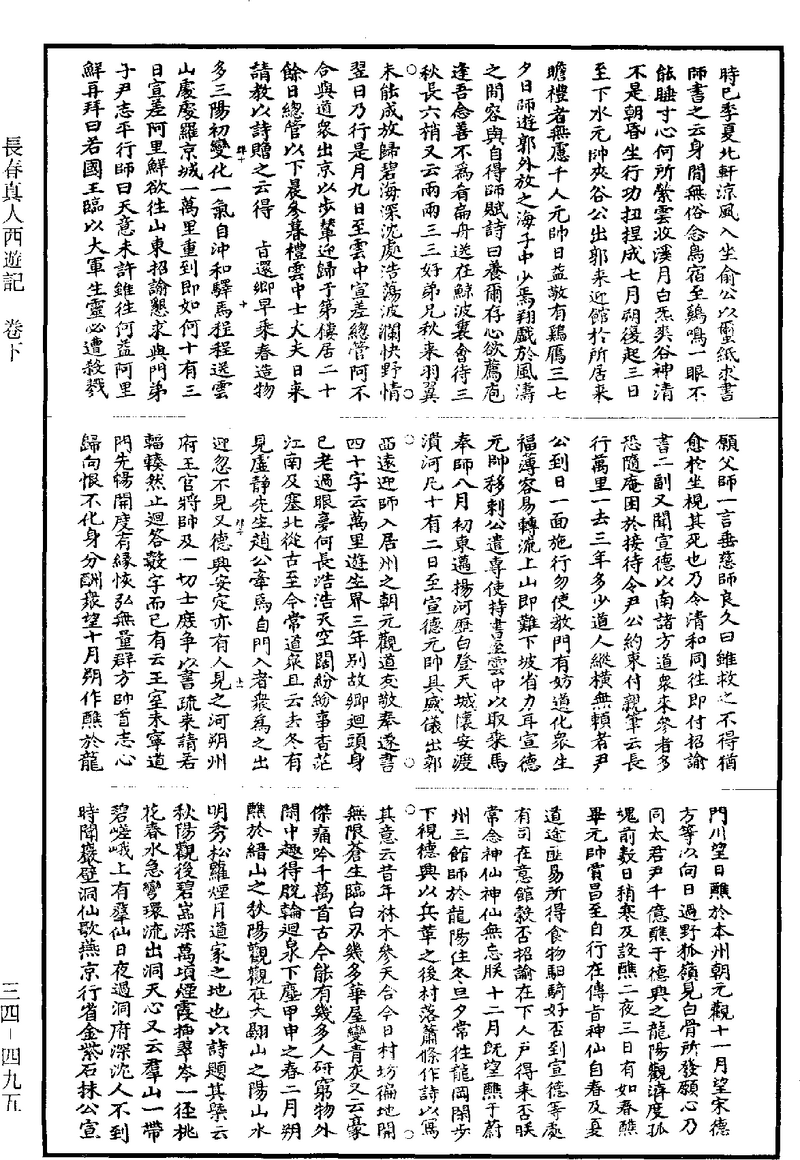 時已季夏北軒涼風入坐俞公以璽紙求書
師書之云身閒無俗念鳥宿至鷄鳴一眼不
能睡寸心何所縈雲收溪月白炁爽谷神清
不是朝昏坐行功扭捏成七月朔復起三日
至下水元帥夾谷公出郭來迎館於所居來
瞻禮者無慮千人元帥日益敬有鷄鴈三七
夕日師遊郭外放之海子中少焉翔戲於風濤
之間容與自得師賦詩曰養爾存心欲薦庖
逢吾念善不為肴扁舟送在鯨波裏會待三
秋長六梢又云兩兩三三好弟兄秋來羽翼
未能成放歸碧海深沈處浩蕩波瀾快野情
翌日乃行是月九日至雲中宣差總管阿不
合與道衆出京以步輦迎歸于第樓居二十
餘日總管以下晨參暮禮雲中士大夫日來
請教以詩贈之云得 旨還鄉早乘春造物
多三陽初變化一氣自沖和驛馬程程送雲
山處處羅京城一萬里重到即如何十有三
日宣差阿里鮮欲往山東招諭懇求與門弟
子尹志平行師曰天意未許雖往何益阿里
鮮再拜曰若國王臨以大軍生靈必遭殺戮
願父師一言垂慈師良久曰雖救之不得猶
愈於坐視其死也乃令清和同往即付招諭
書二副又聞宣德以南諸方道衆來參者多
恐隨庵困於接待令尹公約束付親筆云長
行萬里一去三年多少道人縱橫無賴者尹
公到日一面施行勿使教門有妨道化衆生
福薄容易轉流上山即難下坡省力耳宣德
元帥移剌公遣專使持書至雲中以取乘馬
奉師八月初東邁楊河歷白登天城懷安渡
濆河凡十有二日至宣德元帥具威儀出郭
西遠迎師入居州之朝元觀道友敬奉遂書
四十字云萬里遊生界三年別故鄉迴頭身
已老過眼夢何長浩浩天空闊紛紛事杳茫
江南及塞北從古至今常道衆且云去冬有
見虛靜先生趙公牽馬自門入者衆為之出
迎忽不見又德興安定亦有人見之河朔州
府王官將帥及一切士庶爭以書疏來請若
輻輳然止迴荅數字而已有云王室未寧道
門先暢開度有緣恢弘無量群方帥首志心
歸向恨不化身分酬衆望十月朔作醮於龍
門川望日醮於本州朝元觀十一月望宋德
方等以向日過野狐嶺見白骨所發願心乃
同太君尹千億醮于德興之龍陽觀濟度孤
魂前數日稍寒及設醮二夜三日有如春醮
畢元帥賈昌至自行在傳旨神仙自春及夏
道途匪易所得食物馹騎好否到宣德等處
有司在意館穀否招諭在下人戶得來否朕
常念神仙神仙無忘朕十二月旣望醮于蔚
州三館師於龍陽住冬旦夕常往龍岡閑步
下視德興以兵革之後村落蕭條作詩以寫
其意云昔年林木參天合今日村坊徧地開
無限蒼生臨白刃幾多華屋變青灰又云豪
傑痛吟千萬首古今能有幾多人研窮物外
閑中趣得脫輪迴泉下塵甲申之春二月朔
醮於縉山之秋陽觀觀在大翮山之陽山水
明秀松蘿煙月道家之地也以詩題其槩云
秋陽觀後碧嵓深萬頃煙霞插翠岑一徑桃
花春水急彎環流出洞天心又云羣山一帶
碧嵯峨上有羣仙日夜過洞府深沈人不到
時聞巖壁洞仙歌燕京行省金紫石抹公宣
長春真人西遊記 卷下
三四－四九五